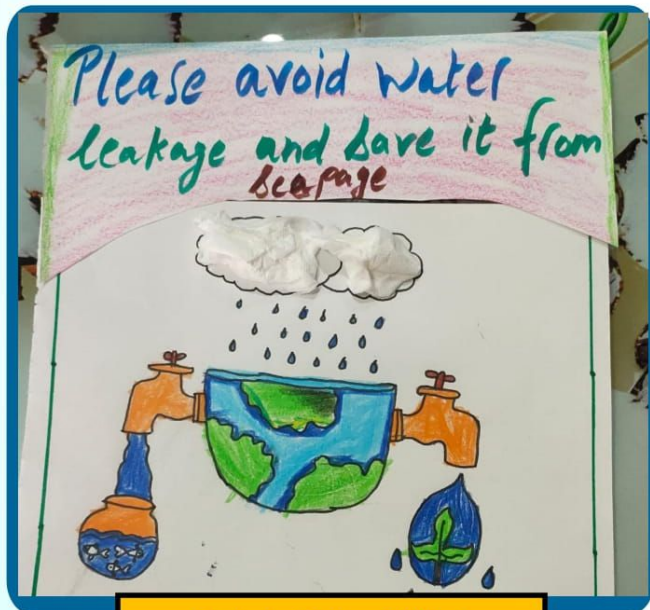 Please avoid water
leakage and save it from
seapage